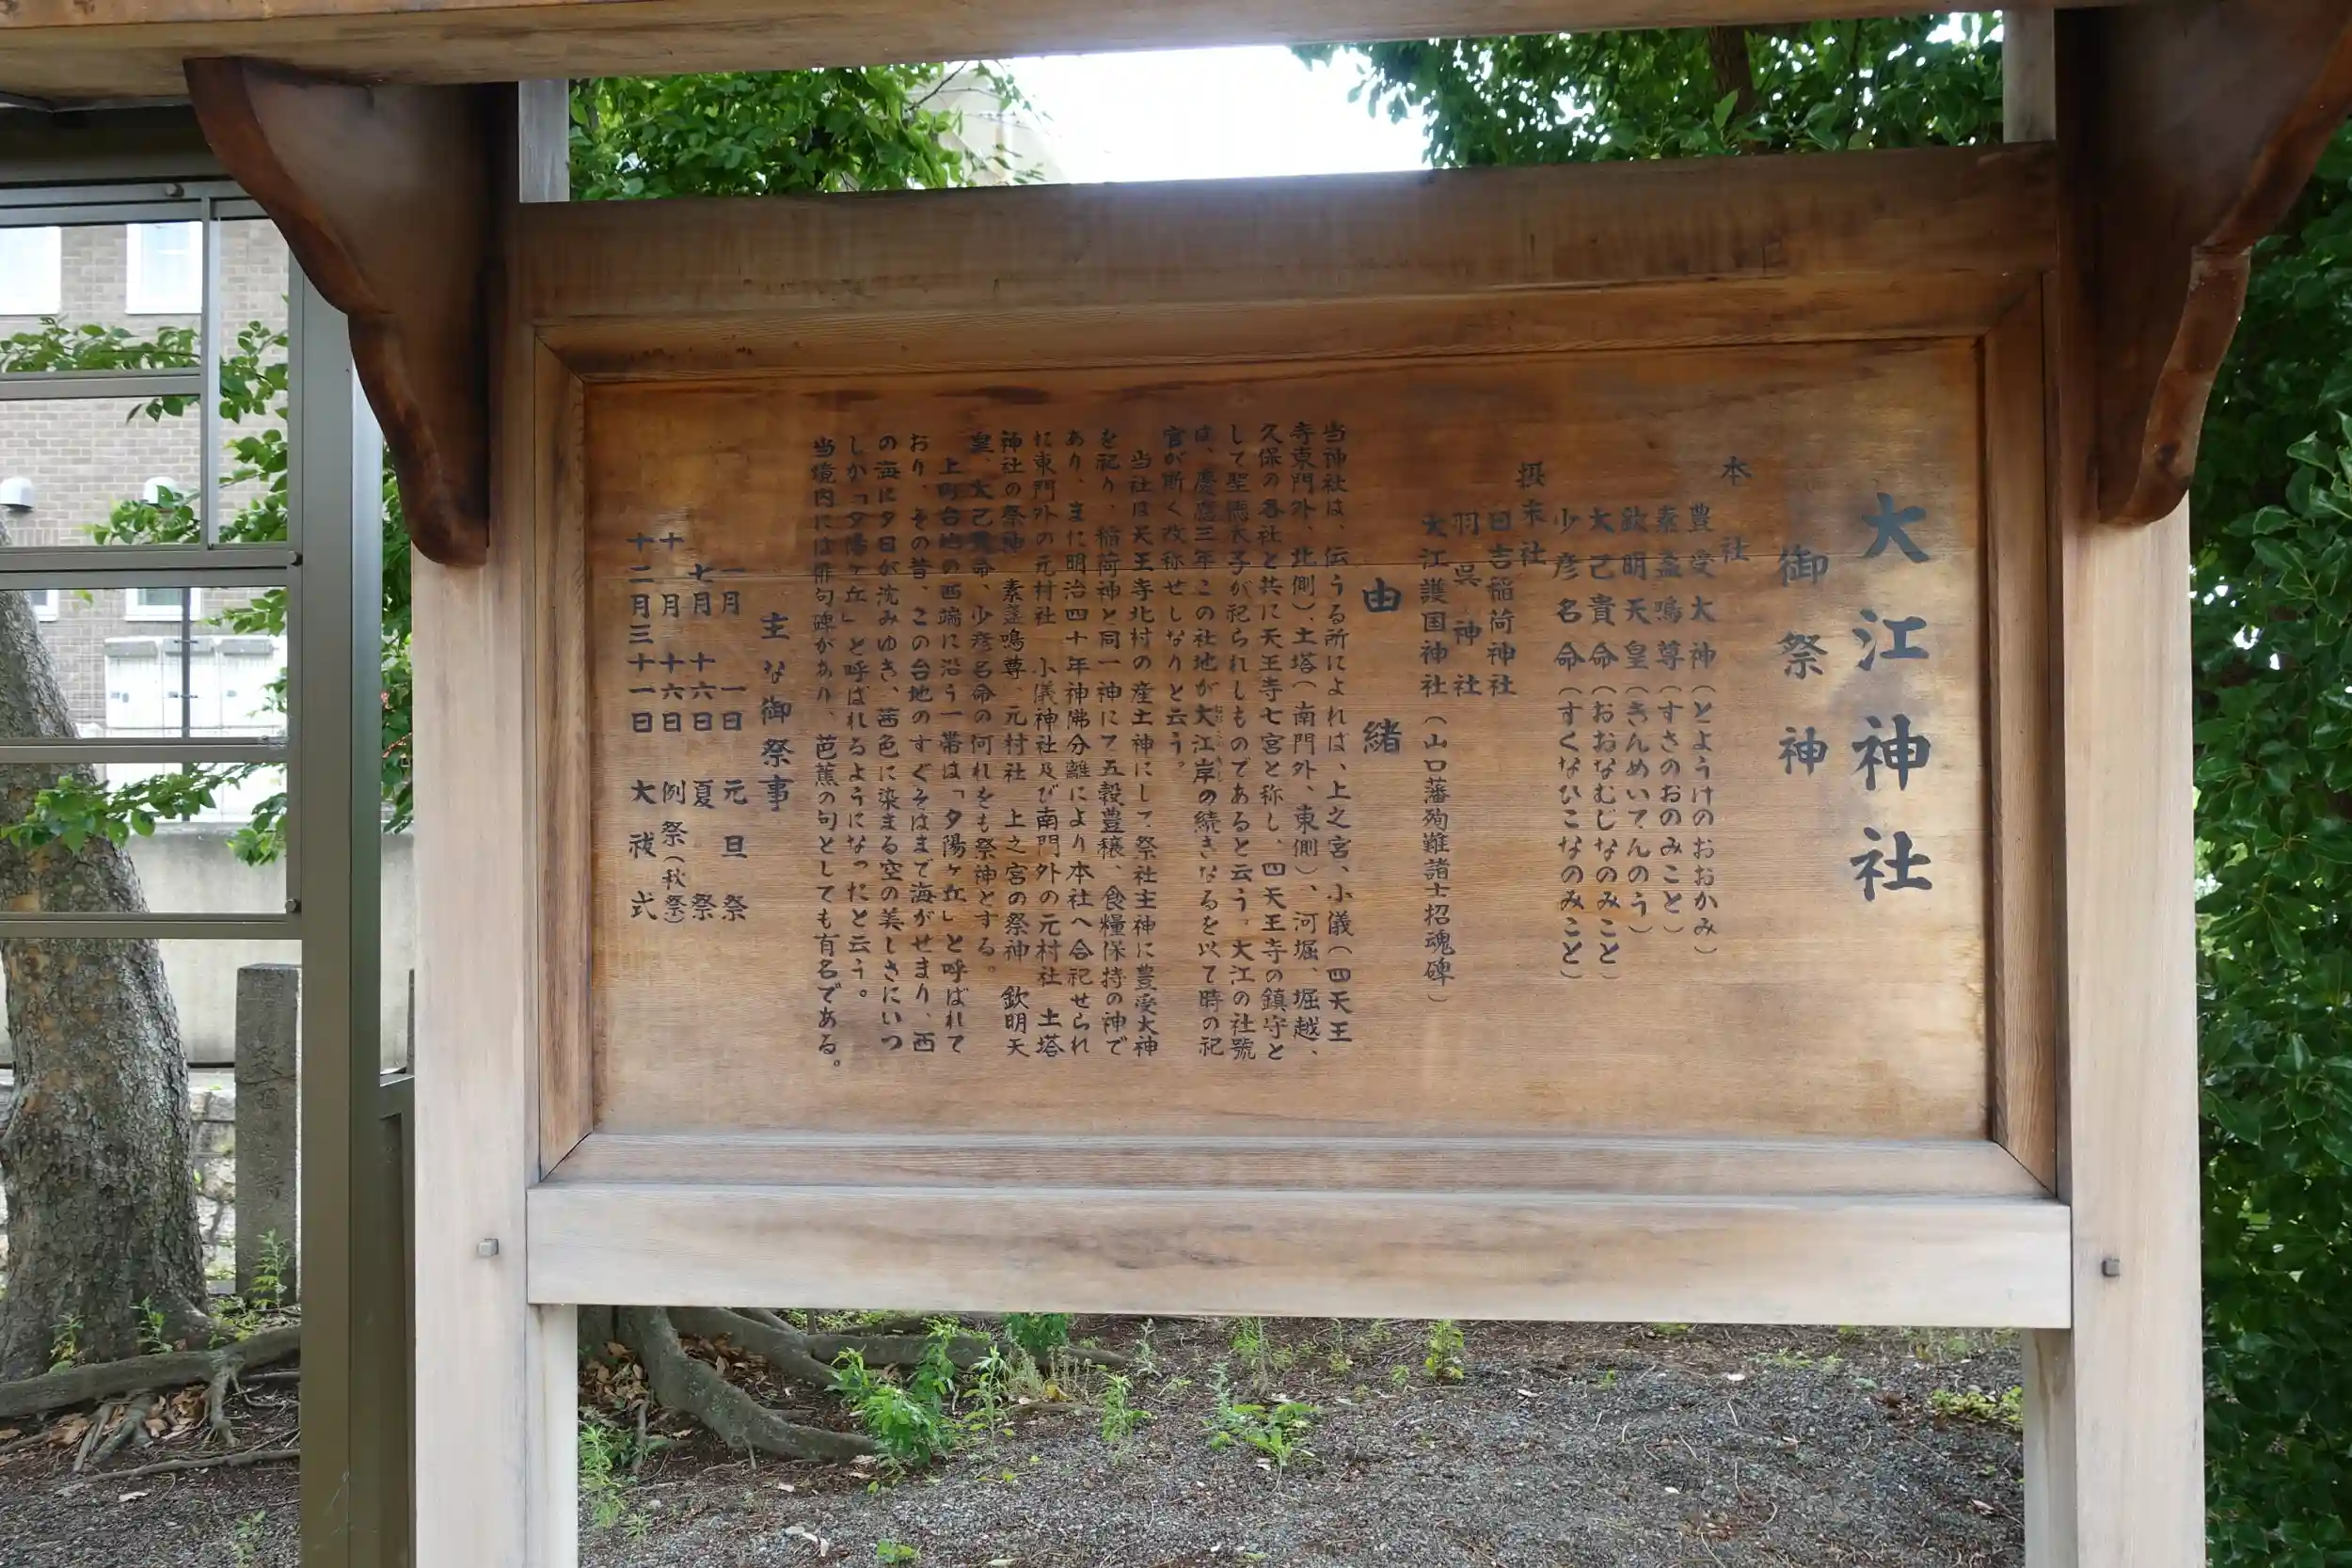 大江神社
御祭神
本社
豊受大神(とようけのおおかみ)
素盞鳴尊(すさのおのみこと)
欽明天皇(きんめいてんのう)
大己貴命(おおなむじなのみこと)
少彦名命(すくなひこなのみこと)
摂末社
日吉稲荷神社
羽呉神社
大江護国神社(山口藩殉難諸士招魂碑)
由緒
当神社は、伝うる所によれば、上之宮、小儀(四天王
寺東門外、北側)、土塔(南門外、東側)、河堀、堀越、
久保の各社と共に天王寺七宮と称し、四天王寺の鎮守と
して聖徳太子が祀られしものであると云う。大江の社號
は、慶應三年この社地が大江岸の続きなるを以て時の祀
官が斯く改称せしなりと云う。
当社は天王寺北村の産土神にして祭社主神に豊受大神
を祀り、稲荷神と同一神にて五穀豊穣、食糧保持の神で
あり、まに明治四十年神佛分離により本社へ合祀せられ
に東門外の元村社 小儀神社及び南門外の元村社 土塔
神社の祭神 素盞鳴尊、元村社 上之宮の祭神 欽明天
皇、大己貴命、少彦名命の何れをも祭神とする。
上町台地の西端に沿う一帯は「夕陽ヶ丘」と呼ばれて
おり、その昔、この台地のすぐそばまで海がせまり、西
の海に夕日が沈みゆき、茜色に染まる空の美しさにいつ
しか「夕陽ヶ丘」と呼ばれるようになったと云う。
当境内には俳句碑があり、芭蕉の句としても有名である。
主な御祭事
一月 一日 元旦祭
七月 十六日 夏祭
十月 十六日 例祭(秋祭)
十二月三十一日 大祓式